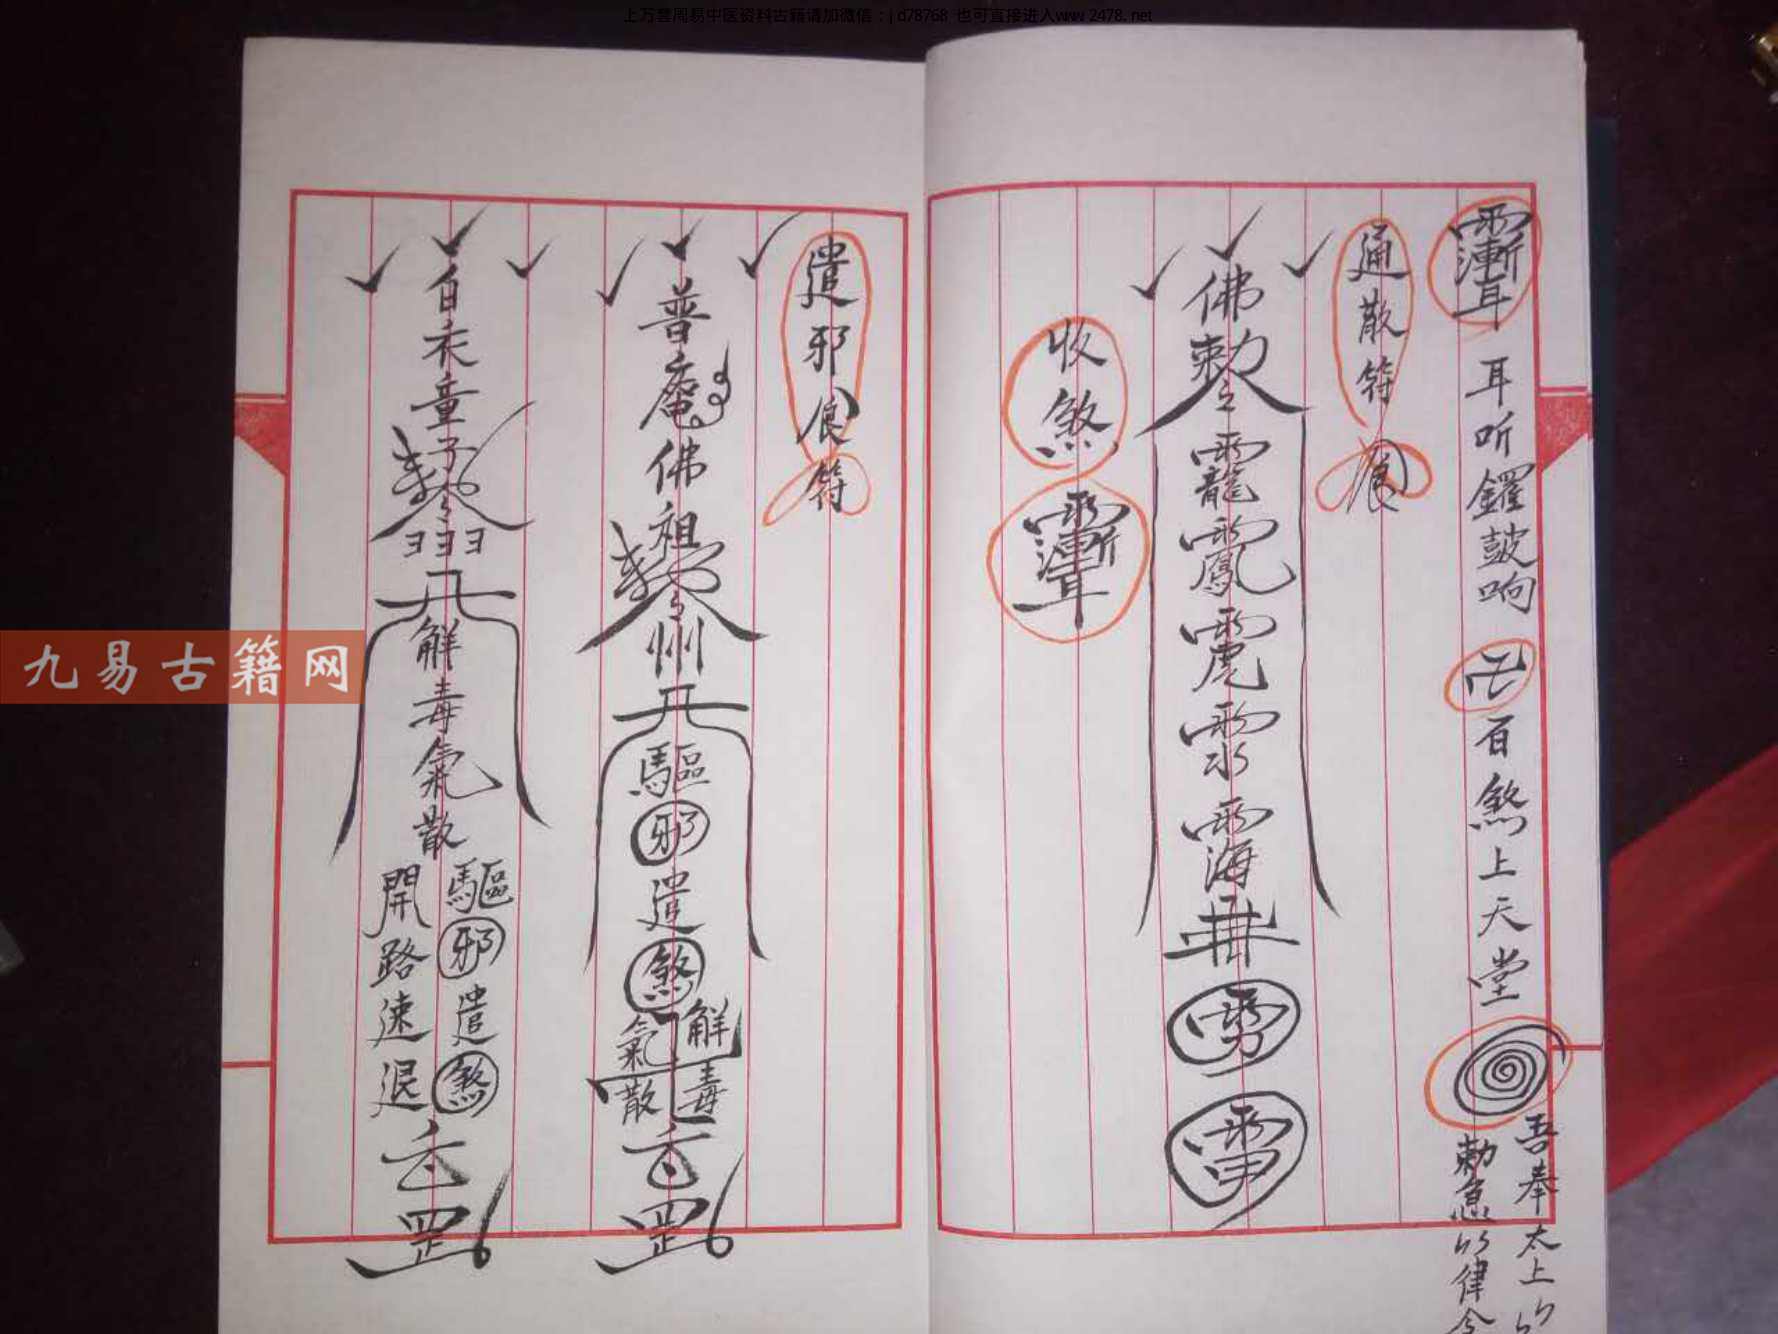 上万套周易中医资料古籍请加微信：jd78768 也可直接进入www 2478. net
耳听鑼鼓响
卍
百煞上天堂
吾奉太上
勅急
律令
通散符
佛勅令
收煞
遣邪
符
普庵佛祖
勅令
州
驅邪遣煞
解毒
氣散
罡
白衣童子
勅令
ヨヨヨ
解毒氣散
驅邪遣煞
開路速退
罡
九易古籍网